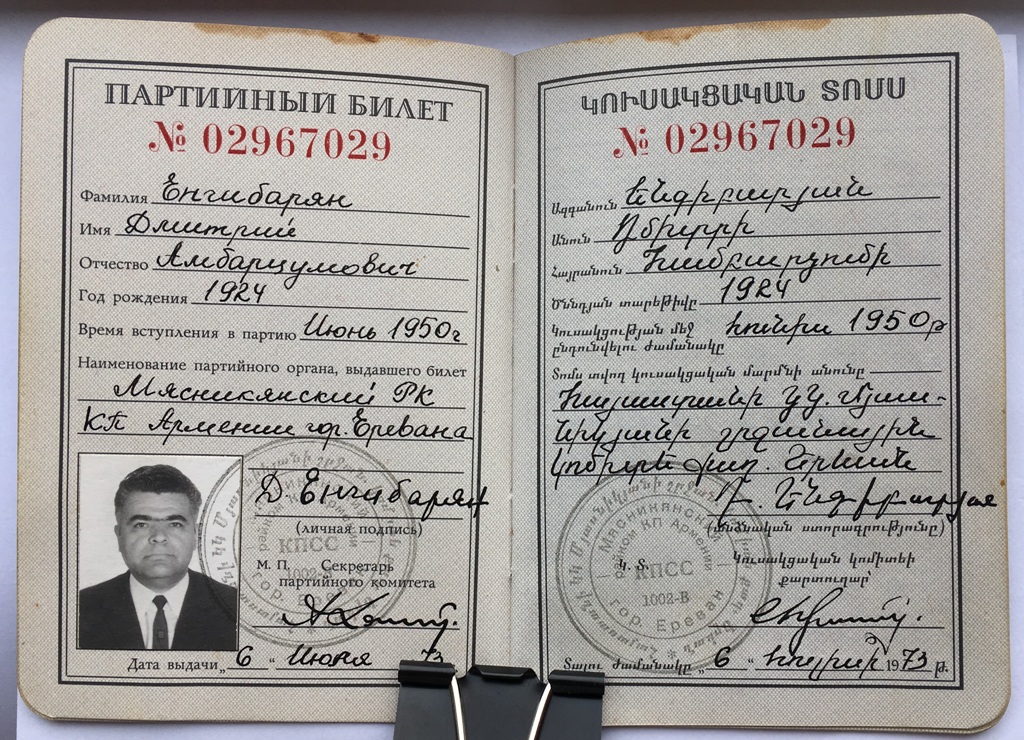 ПАРТИЙНЫЙ БИЛЕТ
№ 02967029
Фамилия Енгибарян
Имя Дмитрий
Отчество Амбарцумович
Год рождения 1924
Время вступления в партию Июнь 1950г
Наименование партийного органа, выдавшего билет
Мясникянский РК
КП Армении гор. Еревана
Д. Енгибарян
(личная подпись)
М. П. Секретарь
партийного комитета
Дата выдачи „6“ Июня 73
КПСС
ԿՈՒՍԱԿՑԱԿԱՆ ՏՈՄՍ
№ 02967029
Ազգանուն Ենգիբարյան
Անուն Դմիտրի
Հայրանուն Համբարձումի
Ծննդյան տարեթիվը 1924
Կուսակցության մեջ հունիս 1950թ
ընդունվելու ժամանակը
Տոմս տվող կուսակցական մարմնի անունը
Հայաստանի Կ.Կ. Մյաս-
նիկյանի շրջանային
կոմիտե քաղ. Երևան
Դ. Ենգիբարյան
(անձնական ստորագրությունը)
Կ. Տ. Կուսակցական կոմիտեի
քարտուղար՝
Տալու ժամանակը „6“ 1973 թ.
Мясникянский
райком КП Армении
КПСС
1002-В
гор. Ереван